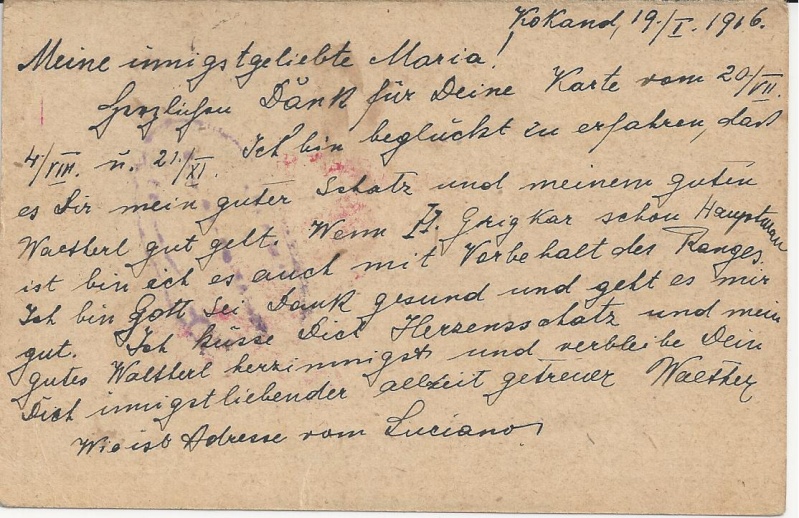 Kokand, 19./I. 1916.
Meine innigstgeliebte Maria!
Herzlichen Dank für Deine Karte vom 20/VII.
4/VIII. u. 21/XI. Ich bin beglückt zu erfahren, daß
es Dir mein guter Schatz und meinem guten
Waltherl gut geht. Wenn H. Grigkar schon Hauptman
ist bin ich es auch mit Vorbehalt des Ranges.
Ich bin Gott sei Dank gesund und geht es mir
gut. Ich küsse Dich Herzensschatz und mein
gutes Waltherl herzinnigst und verbleibe Dein
Dich innigstliebender allzeit getreuer Walther
Wie ist Adresse vom Luciano